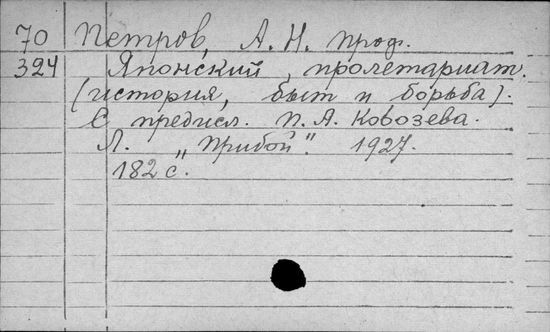 70 Петров, А. Н. проф.
324 Японский пролетариат.
(история, быт и борьба).
С предисл. П. А. Кобозева.
Л. „Прибой" 1927.
182 с.